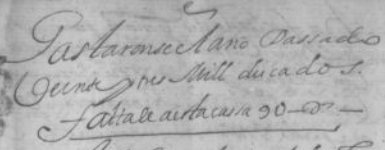 Gastaronse el ano Passado
Veinte y tres Mill ducados.
faltale a esta cassa 90 d